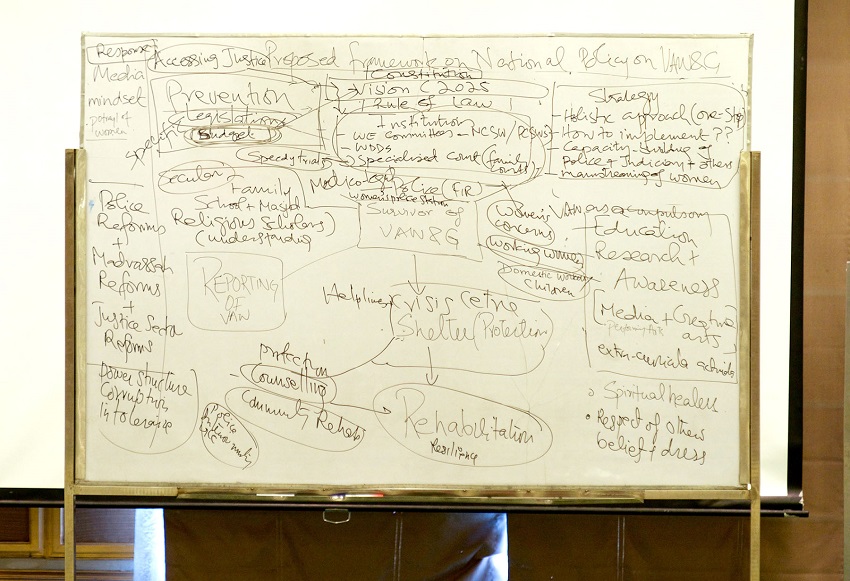 Response
Accessing Justice
Proposed framework on National Policy on VAW&G
Media
mindset
women
Prevention
Legislations
specific
Budget
Speedy trials
Constitution
Vision 2025
Rule of Law
Institution
- WE Committees - NCSW/PCSWs
- WDDs
Specialised court (family courts)
Strategy
- Holistic approach (one-stop
- How to implement ??
- Capacity-building of
Police + Judiciary + others
mainstreaming of women
Secular
Family
School + Masjid
Religious Scholars
(understanding
Medico legal
+ Police (FIR)
Women's police station
Survivor of
VAW&G
Women's
concerns
Working women
Domestic workers
Children
VAW as compulsory
Education
Research +
Awareness
[Media + Creative
arts
performing arts
extra-curricula activities
Police
Reforms
+
Madrassah
Reforms
+
Justice Sector
Reforms
REPORTING
OF
VAW
Helplines
Crisis Cetre
Shelter (Protection)
Power structure
Corruption
Intolerance
Protection
- Counselling
Community Rehab
Police
Rehabilitation
Resiliency
Spiritual healers
Respect of others
belief & dress